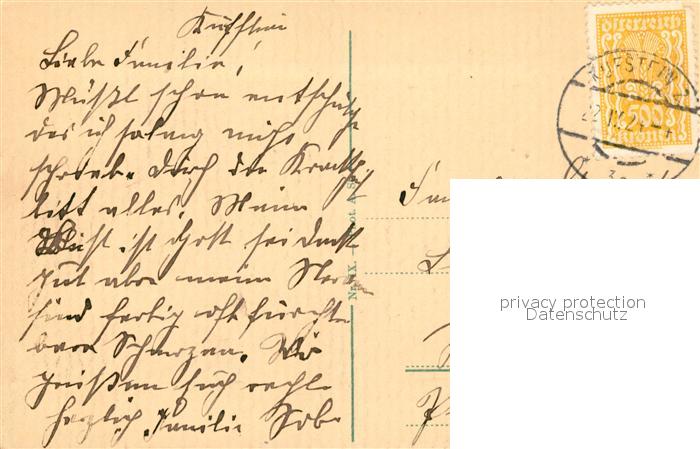 Kufstein
Liebe Familie,
Müßt schon entschul
das ich solang nicht
schrieb. Durch die Krankh
litt alles. Meine
ist Gott sei dank
gut aber meine Nerven
sind fertig oft furcht
bare Schmerzen. Wir
grüßen Euch recht
herzlich Familie
Österreich
500
Kronen
KUFSTEIN
22.IV.24
Nr. IX.
privacy protection
Datenschutz